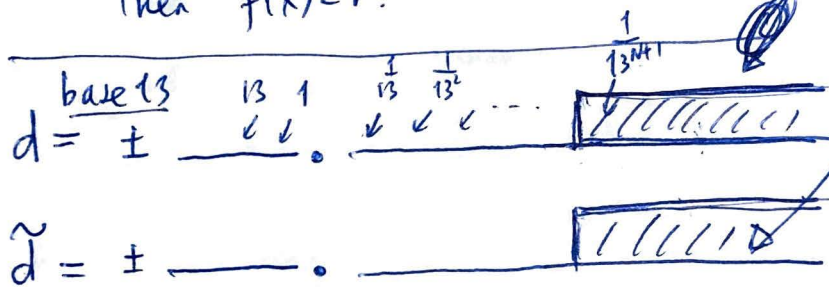 Then f(x)=r.
base 13 13 1 1/13 1/13² ... 1/13^{N+1}
d = ± ___ . ___
d̃ = ± ___ . ___